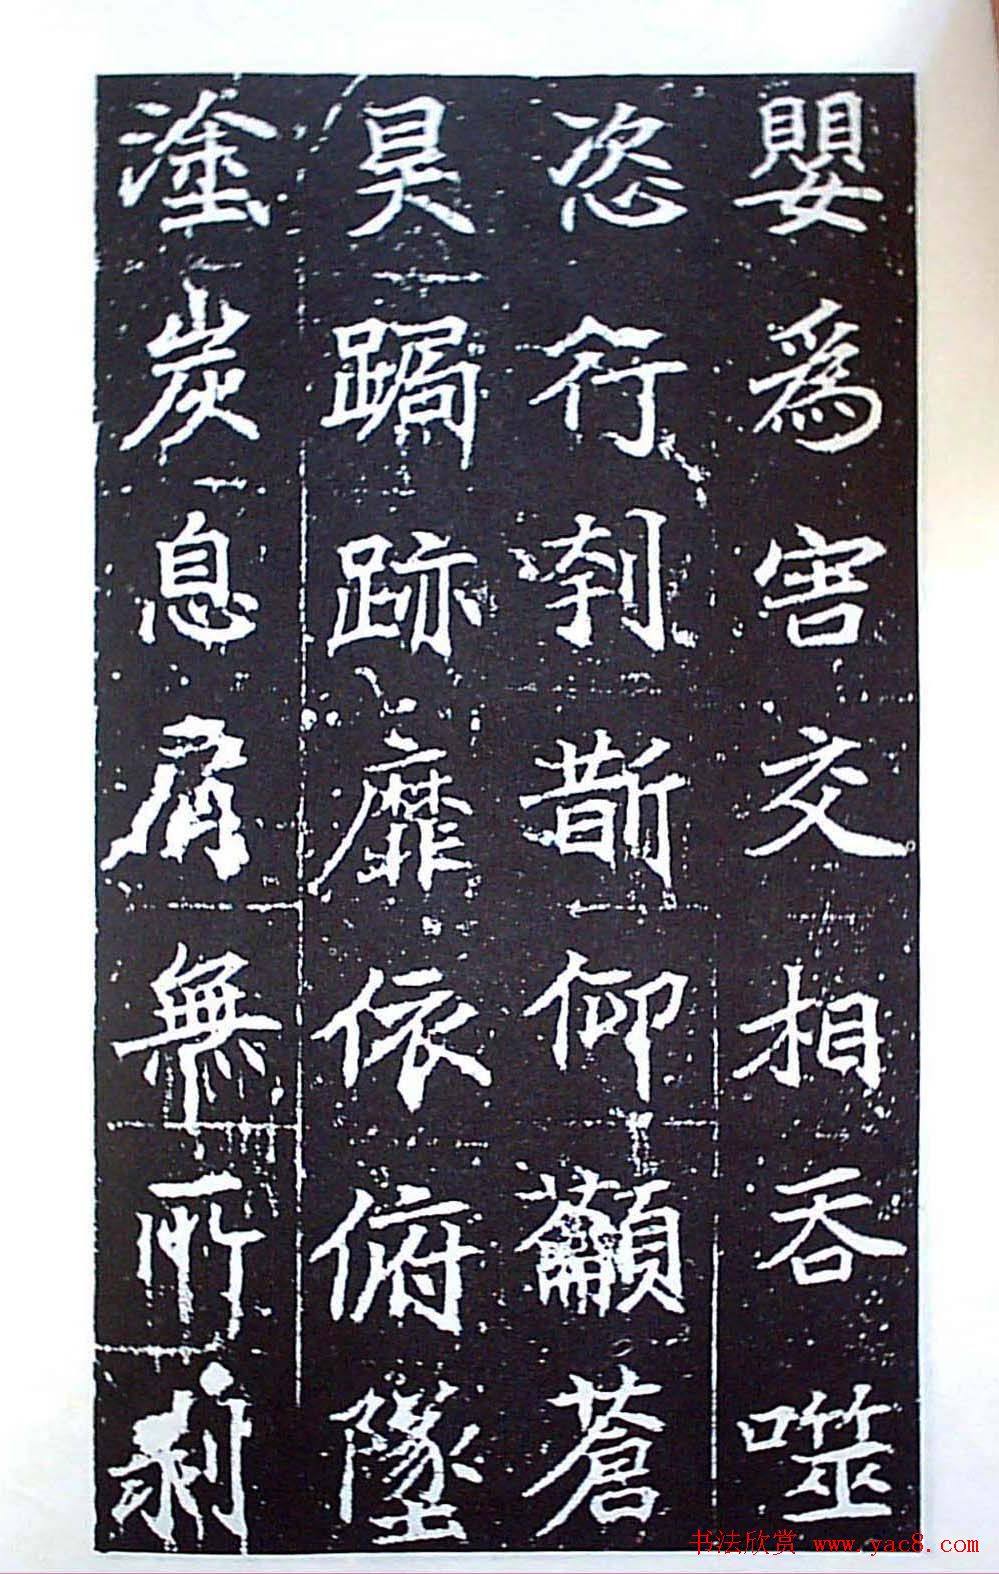 嬰爲害交相吞噬
恣行刳斮仰籲蒼
昊跼跡靡依俯墜
塗炭息肩無所剥
书法欣赏 www.yac8.com